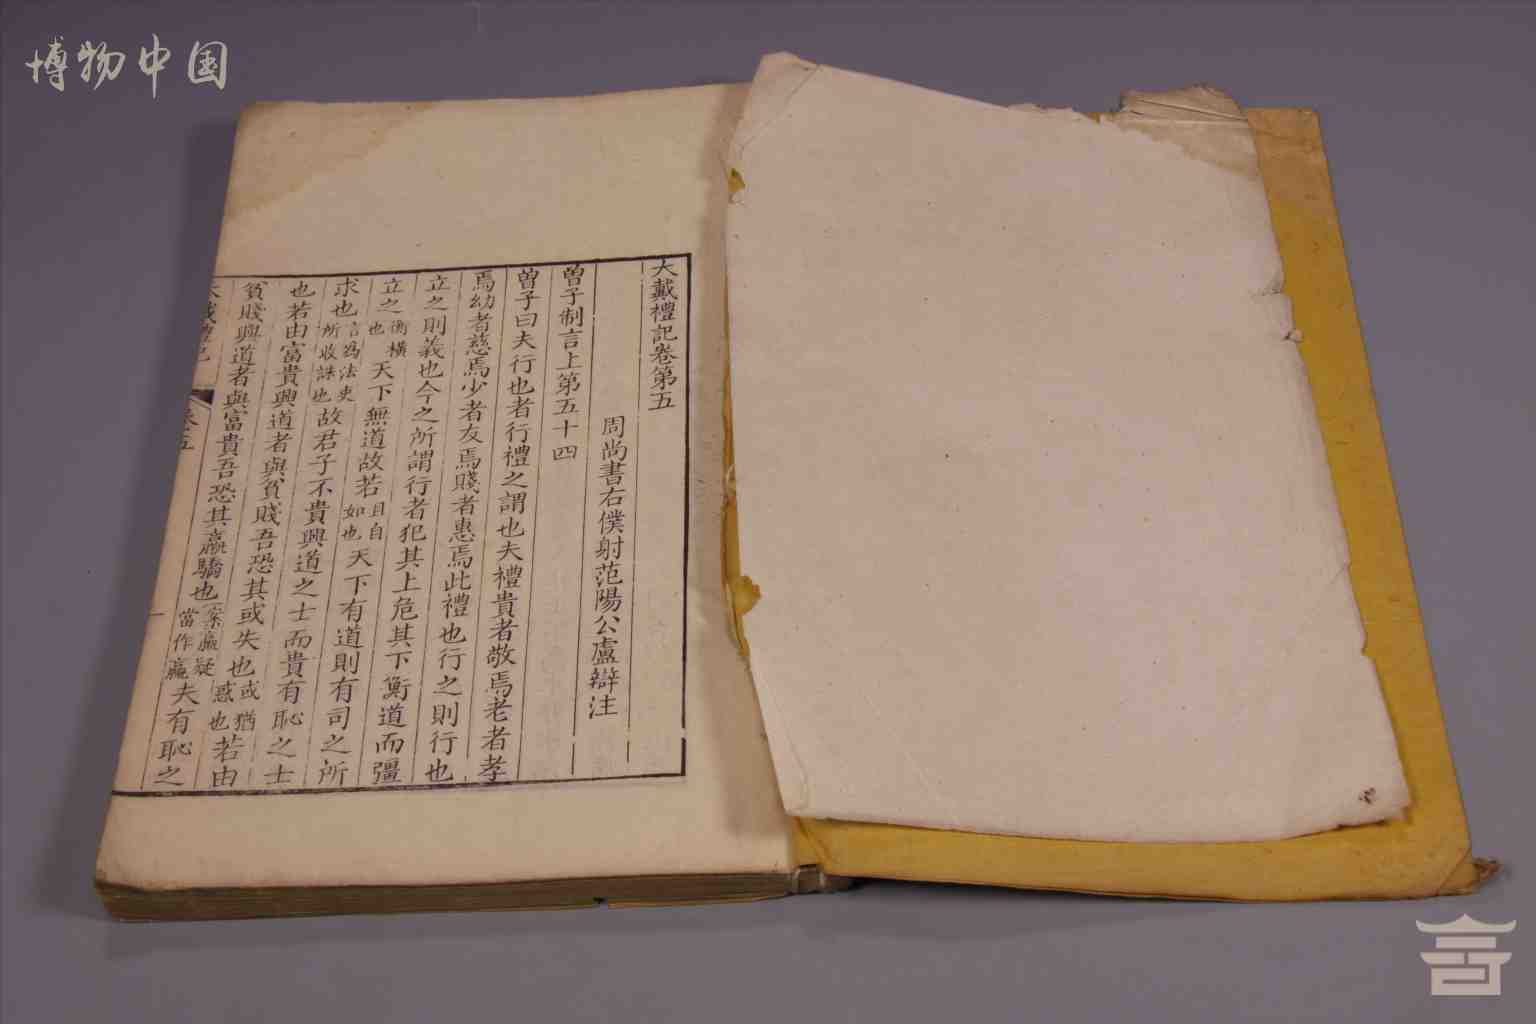 博物中国
大戴禮記卷第五
周尚書右僕射范陽公盧辯注
曾子制言上第五十四
曾子曰夫行也者行禮之謂也夫禮貴者敬焉老者孝
焉幼者慈焉少者友焉賤者惠焉此禮也行之則行也
立之則義也今之所謂行者犯其上危其下衡道而彊
立之衡橫也天下無道故若且自如也天下有道則有司之所
求也言為法吏所收誅也故君子不貴興道之士而貴有恥之士
也若由富貴興道者與貧賤吾恐其或失也或猶惑也若由
貧賤興道者與富貴吾恐其羸驕也案羸疑當作贏夫有恥之
大戴禮記 卷五